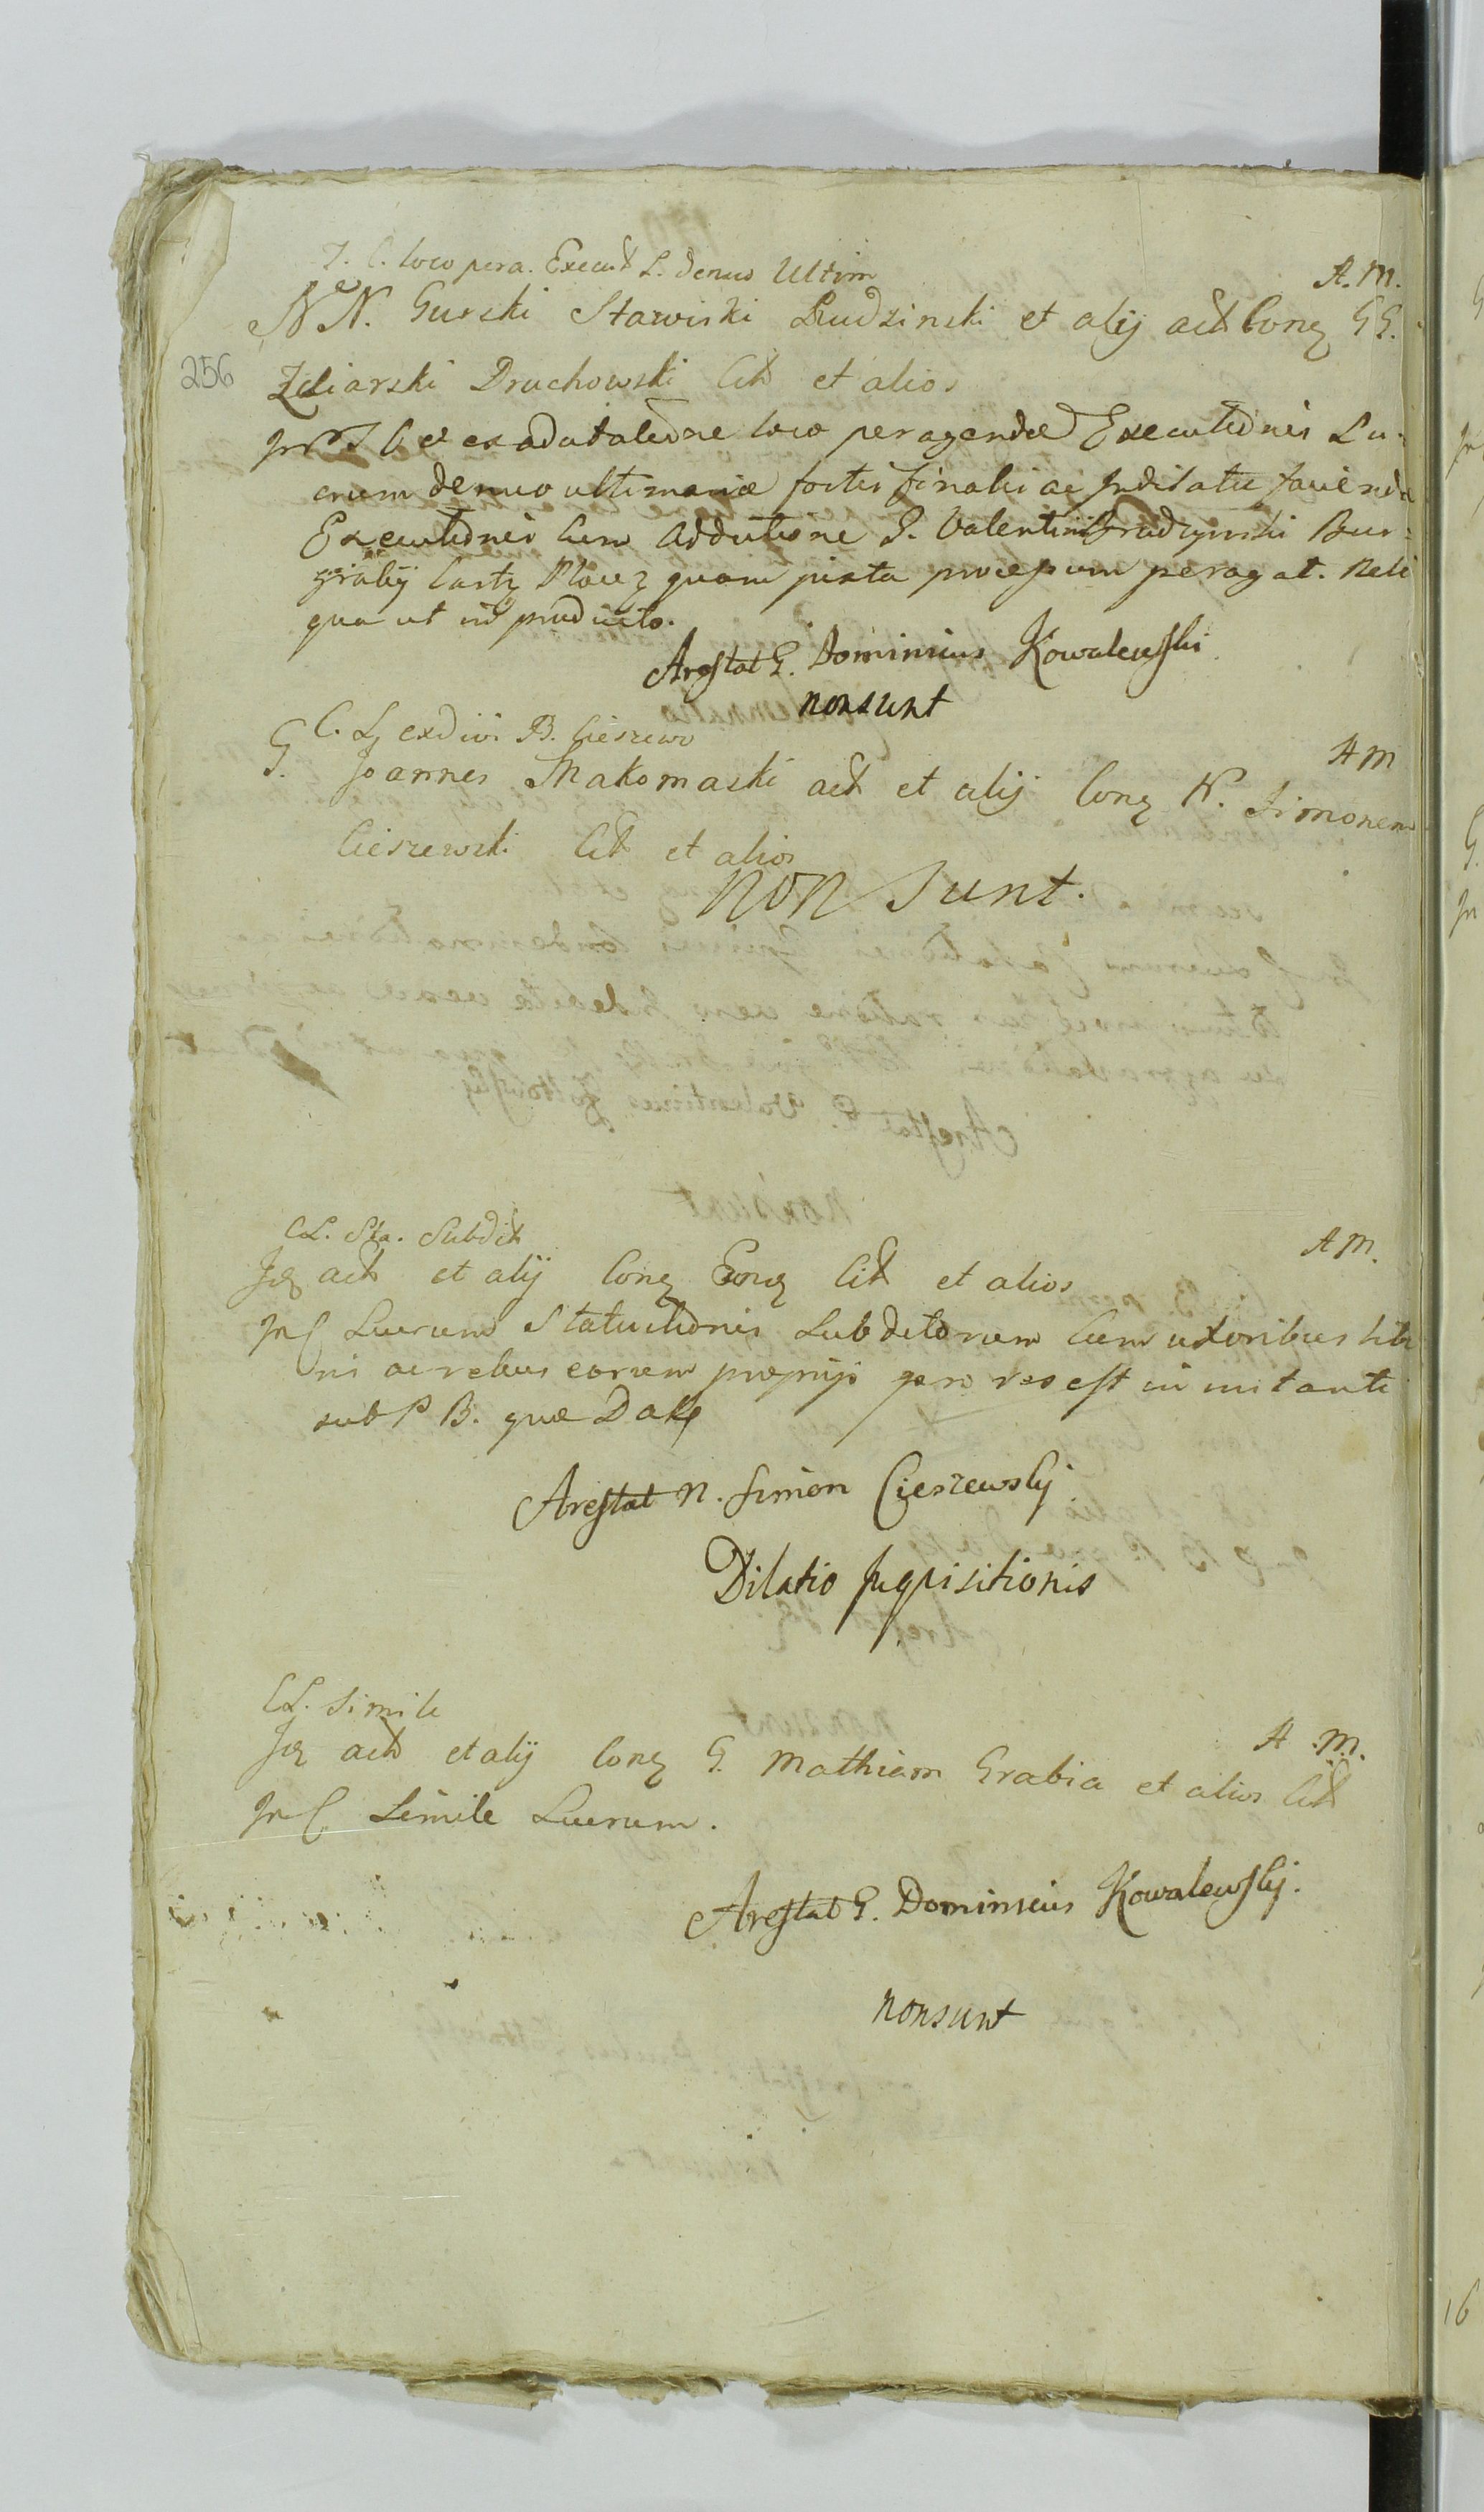 T. C. loco pera. Execut L. denuo Ultim
A. M.
NN. Gurski Stawiski Rudzinski et alij act Conq GG.
256
Zeliarski Druchowski Cit et alios
C et ex adcitatione loco peragendæ Executionis Lu-
crum denuo ultimariæ fortis finalis ac faciendæ
Executionis cum Addutione G. Valentini Gradzynski Bur-
grabij Castr Ploc quam juxta processum peragat. Reli
qua ut in producto.
Arestat G. Dominicus Kowalewski
non sunt
C. L. ex divi B. Cieszewo
A M
G. Joannes Makomaski act et alij Conq N. Simonem
Cieszewski Cit et alios
Non Sunt.
CL. Sta. Subdit
A M.
Id act et alij Conq Eund Cit et alios
In C Lucrum Statuitionis Subditorum cum uxoribus libe
ris ac rebus eorum proprijs pro res est in instanti
sub P B. quæ Dat
Arestat N. Simon Cieszewsky
Dilatio Inqvisitionis
CL. Simile
A. M.
Id act et alij Conq G. Mathiam Grabia et alios Cit
In C Simile Lucrum.
Arestat G. Dominicus Kowalewsky.
non sunt